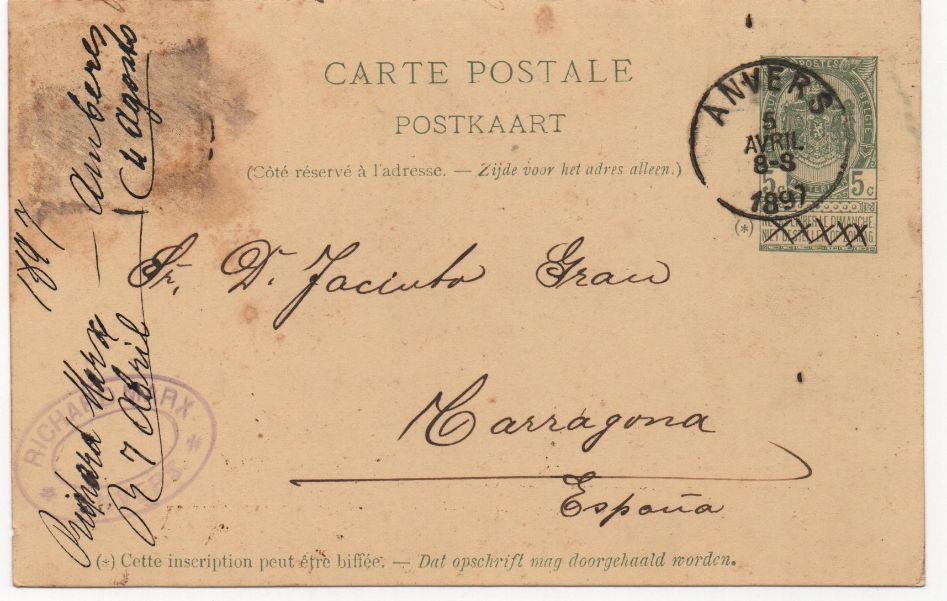 CARTE POSTALE
POSTKAART
(Côté réservé à l'adresse. — Zijde voor het adres alleen.)
POSTES
5c 5c
ANVERS
5
AVRIL
8-S
1897
(*)
Sr. Dn. Jacinto Grau
Tarragona
España
(*) Cette inscription peut être biffée. — Dat opschrift mag doorgehaald worden.
1897 — Amberes
Richard Marx
R 7 Abril
4 Agosto
RICHARD MARX